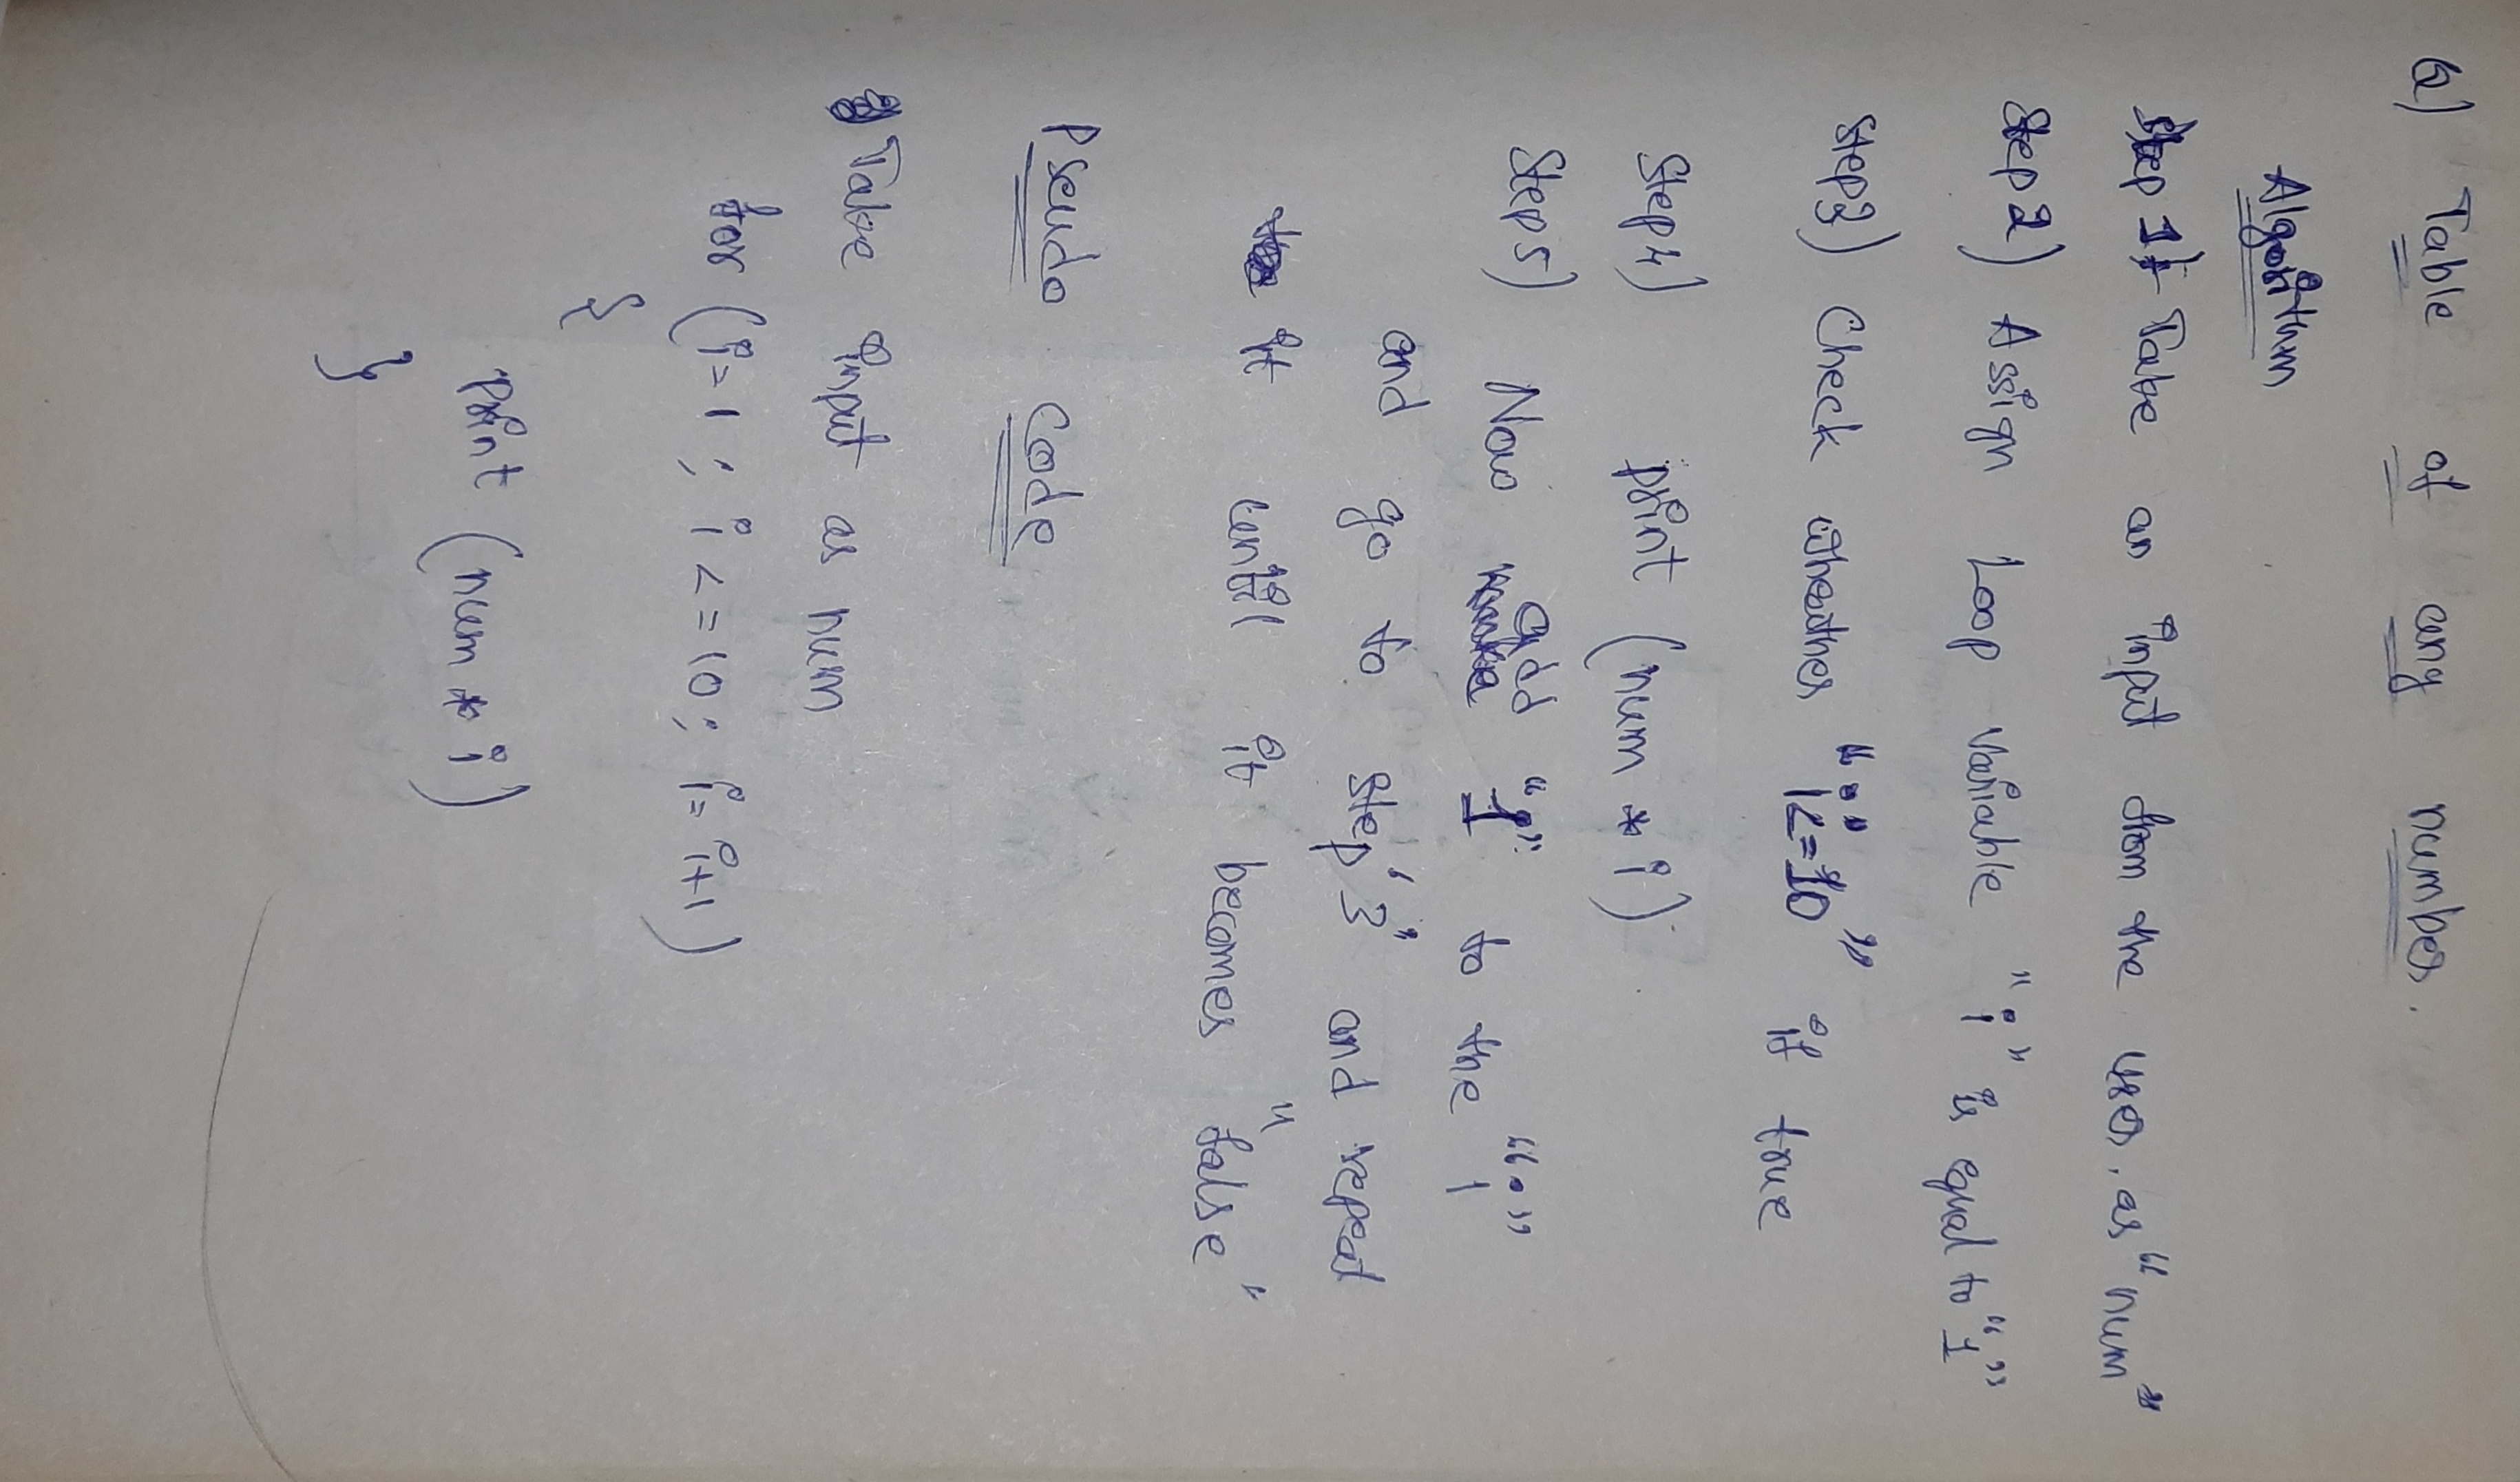 Q) Table of any number.
Algorithm
Step 1) Take an input from the user. as "num"
Step 2) Assign Loop variable "i" is equal to "1"
Step 3) Check wheather "i<=10" if true
Step 4) print (num * i)
Step 5) Now add "1" to the "i"
and go to step "3" and repeat
it until it becomes "false"
Pseudo code
Take input as num
for (i=1; i<=10; i=i+1)
{
Print (num * i)
}